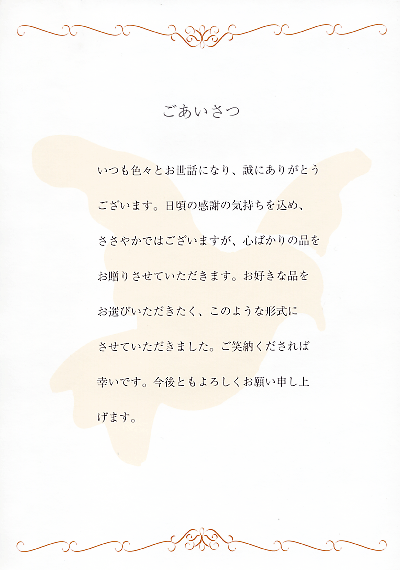 ごあいさつ
いつも色々とお世話になり、誠にありがとう
ございます。日頃の感謝の気持ちを込め、
ささやかではございますが、心ばかりの品を
お贈りさせていただきます。お好きな品を
お選びいただきたく、このような形式に
させていただきました。ご笑納くだされば
幸いです。今後ともよろしくお願い申し上
げます。